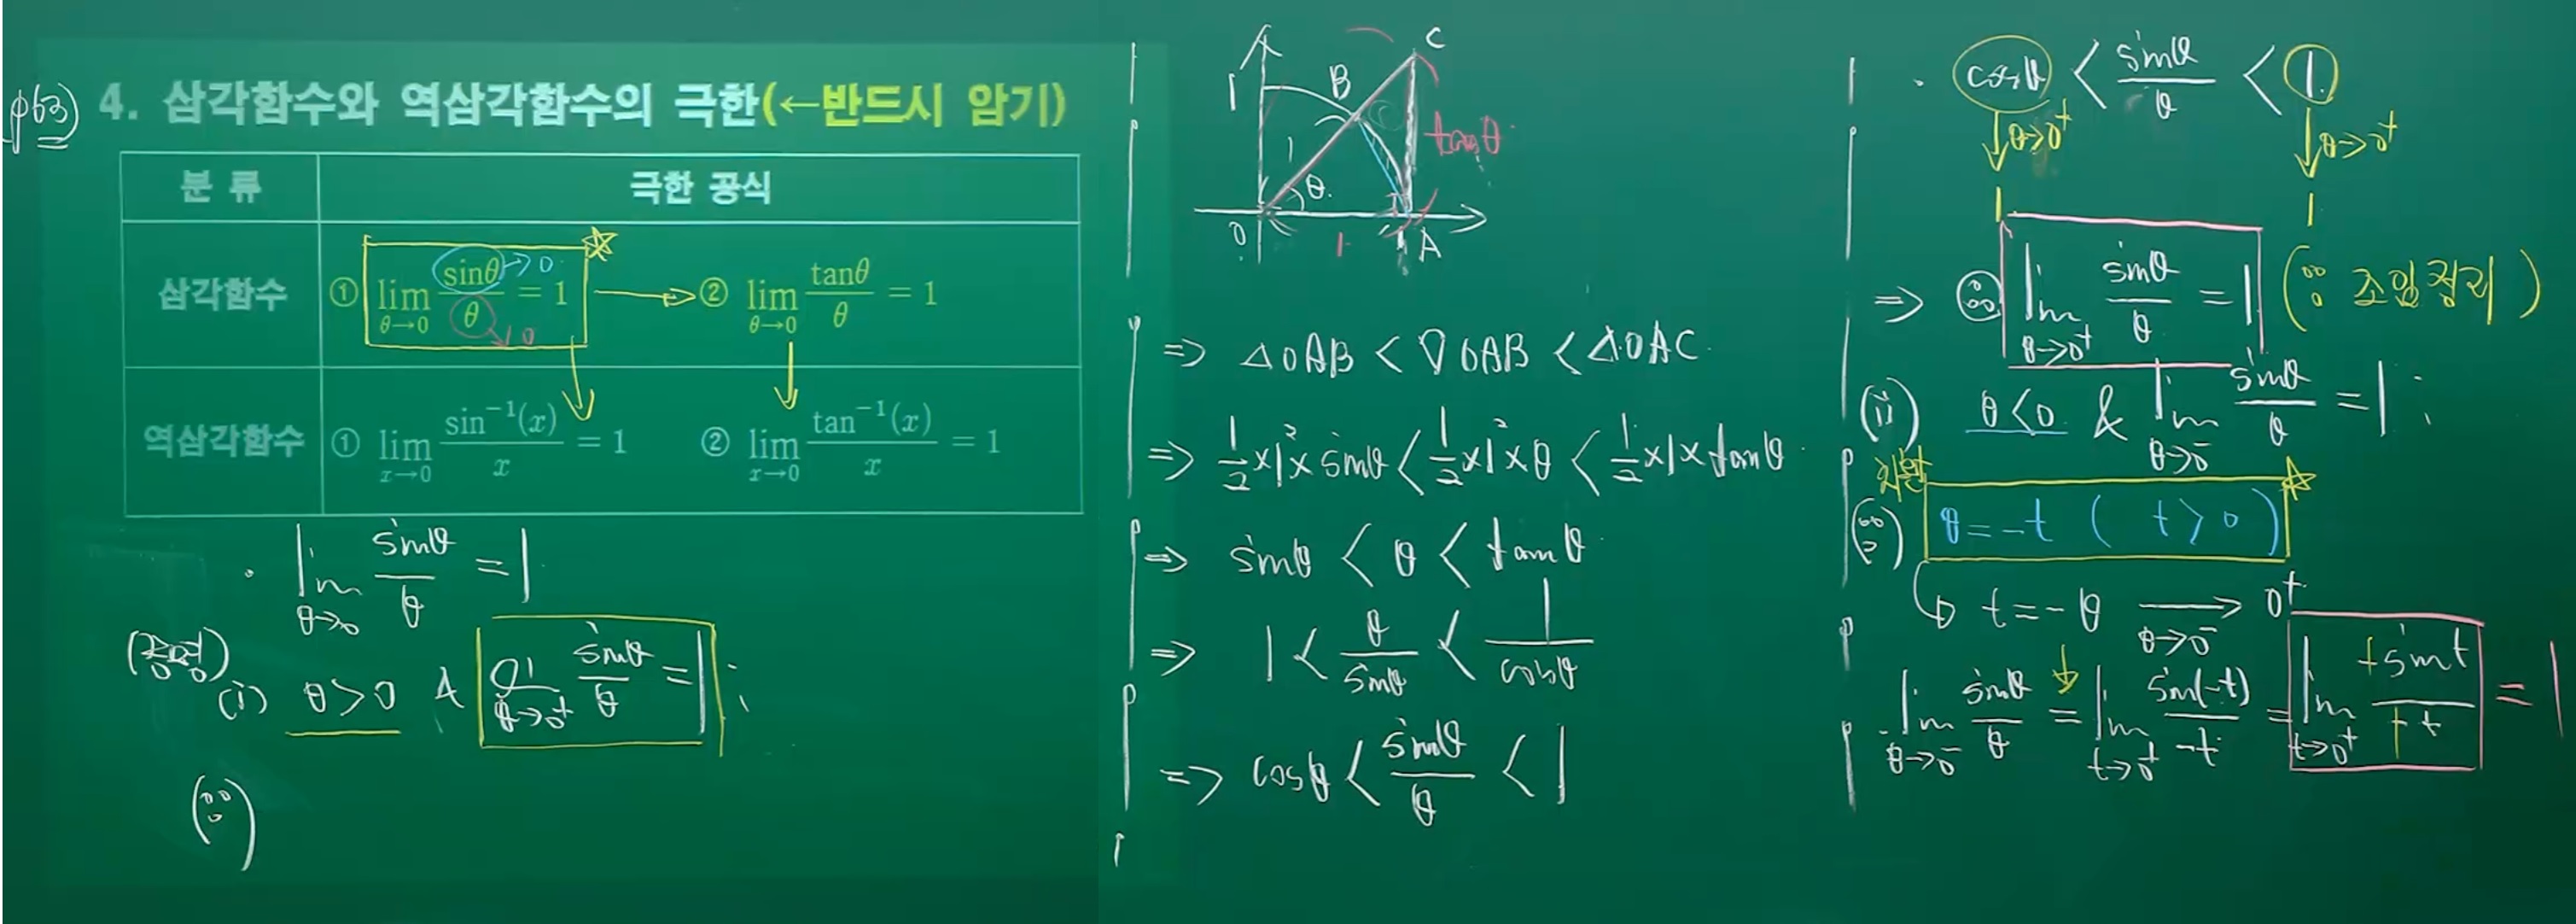 p63) 4. 삼각함수와 역삼각함수의 극한(←반드시 암기)
분 류 극한 공식
삼각함수 ① lim θ→0 sinθ/θ = 1 → ② lim θ→0 tanθ/θ = 1
→0
→0
역삼각함수 ① lim x→0 sin⁻¹(x)/x = 1 ② lim x→0 tan⁻¹(x)/x = 1
· lim θ→0 sinθ/θ = 1
(i) θ>0 & lim θ→0⁺ sinθ/θ = 1 ;
(∵)
1 B C
1 θ tanθ
0 1 A
⇒ △OAB < ▽OAB < △OAC
⇒ 1/2×1²×sinθ < 1/2×1²×θ < 1/2×1×tanθ
⇒ sinθ < θ < tanθ
⇒ 1 < θ/sinθ < 1/cosθ
⇒ cosθ < sinθ/θ < 1
· cosθ < sinθ/θ < 1
↓θ→0⁺ ↓θ→0⁺
1 1
⇒ ∴ lim θ→0⁺ sinθ/θ = 1 (∵ 조임정리)
(ii) θ<0 & lim θ→0⁻ sinθ/θ = 1 ;
(∵) θ=-t ( t>0 )
↳ t=-θ → 0⁺
θ→0⁻
lim θ→0⁻ sinθ/θ = lim t→0⁺ sin(-t)/-t = lim t→0⁺ +sint/+t = 1